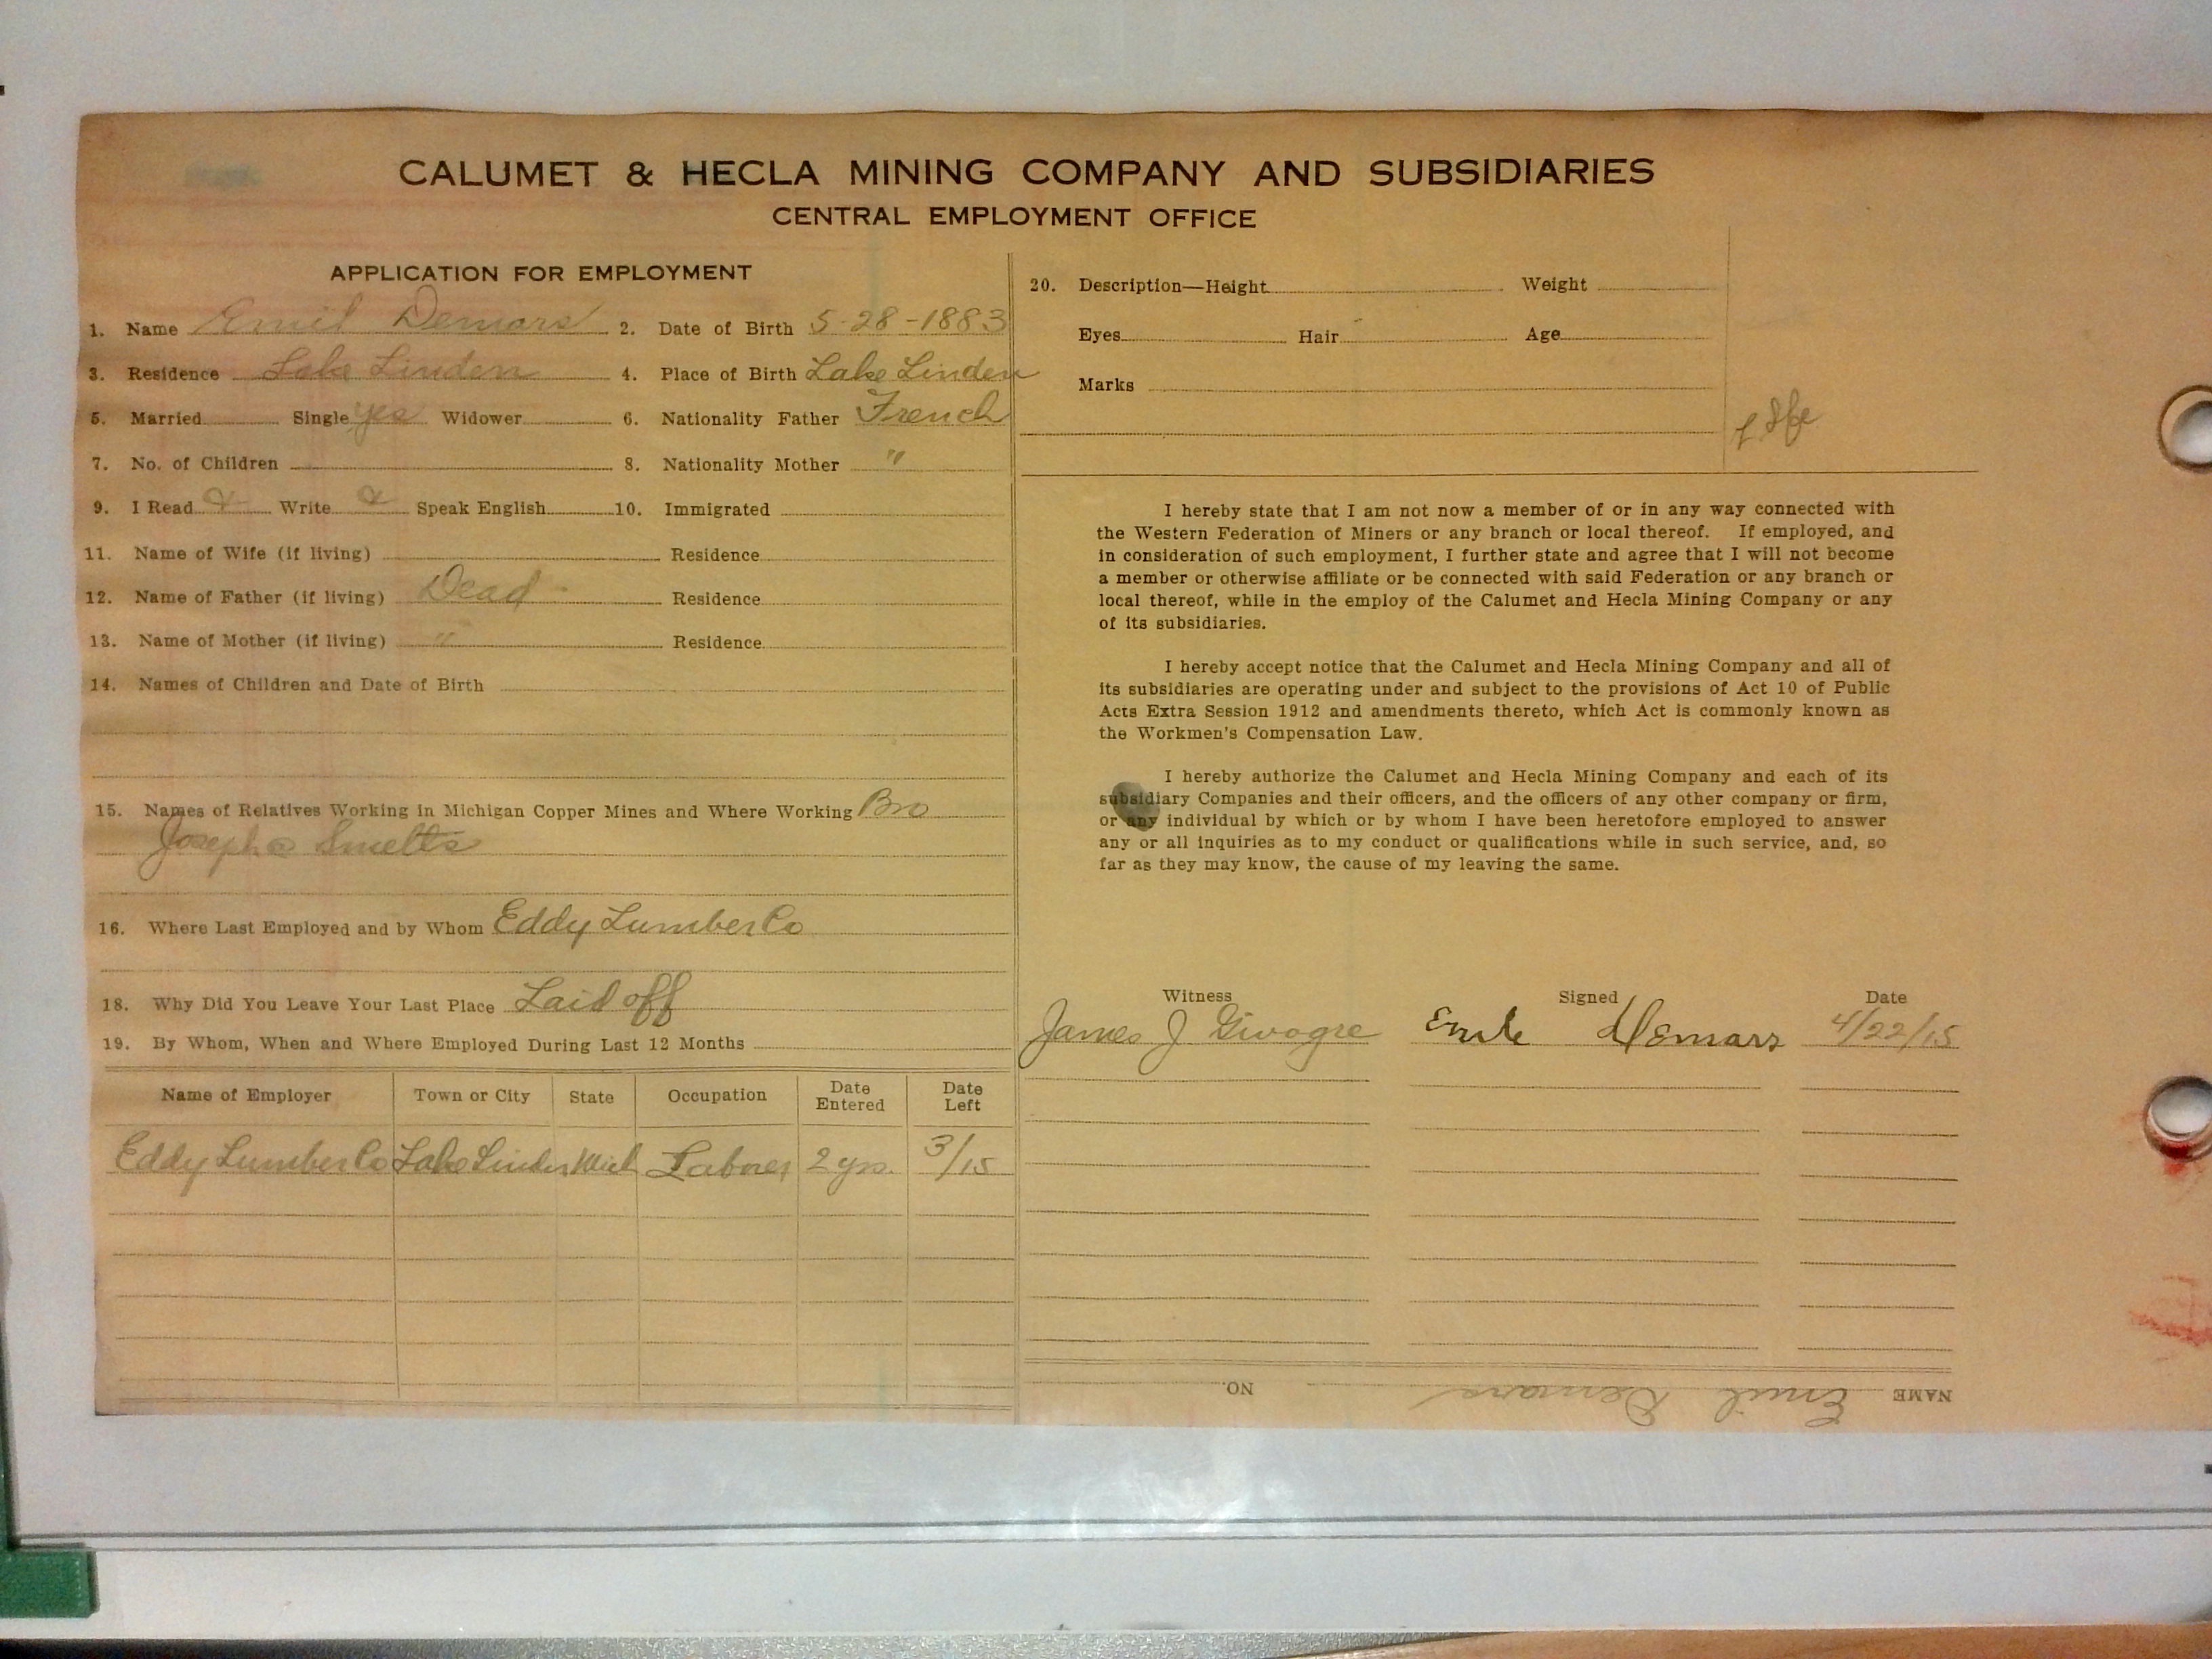 CALUMET & HECLA MINING COMPANY AND SUBSIDIARIES
CENTRAL EMPLOYMENT OFFICE
APPLICATION FOR EMPLOYMENT
1. Name Emil Demars 2. Date of Birth 5-28-1883
3. Residence Lake Linden 4. Place of Birth Lake Linden
5. Married Single yes Widower 6. Nationality Father French
7. No. of Children 8. Nationality Mother "
9. I Read Write Speak English 10. Immigrated
11. Name of Wife (if living) Residence
12. Name of Father (if living) Dead Residence
13. Name of Mother (if living) " Residence
14. Names of Children and Date of Birth
15. Names of Relatives Working in Michigan Copper Mines and Where Working Bro
Joseph @ Smelts
16. Where Last Employed and by Whom Eddy Lumber Co
18. Why Did You Leave Your Last Place Laid off
19. By Whom, When and Where Employed During Last 12 Months
Name of Employer Town or City State Occupation Date Entered Date Left
Eddy Lumber Co Lake Linden Mich Laborer 2 yrs. 3/15
20. Description—Height Weight
Eyes Hair Age
Marks
I hereby state that I am not now a member of or in any way connected with
the Western Federation of Miners or any branch or local thereof. If employed, and
in consideration of such employment, I further state and agree that I will not become
a member or otherwise affiliate or be connected with said Federation or any branch or
local thereof, while in the employ of the Calumet and Hecla Mining Company or any
of its subsidiaries.
I hereby accept notice that the Calumet and Hecla Mining Company and all of
its subsidiaries are operating under and subject to the provisions of Act 10 of Public
Acts Extra Session 1912 and amendments thereto, which Act is commonly known as
the Workmen's Compensation Law.
I hereby authorize the Calumet and Hecla Mining Company and each of its
subsidiary Companies and their officers, and the officers of any other company or firm,
or any individual by which or by whom I have been heretofore employed to answer
any or all inquiries as to my conduct or qualifications while in such service, and, so
far as they may know, the cause of my leaving the same.
Witness Signed Date
James J Emile Demars 4/22/15
NAME Emil Demars NO.